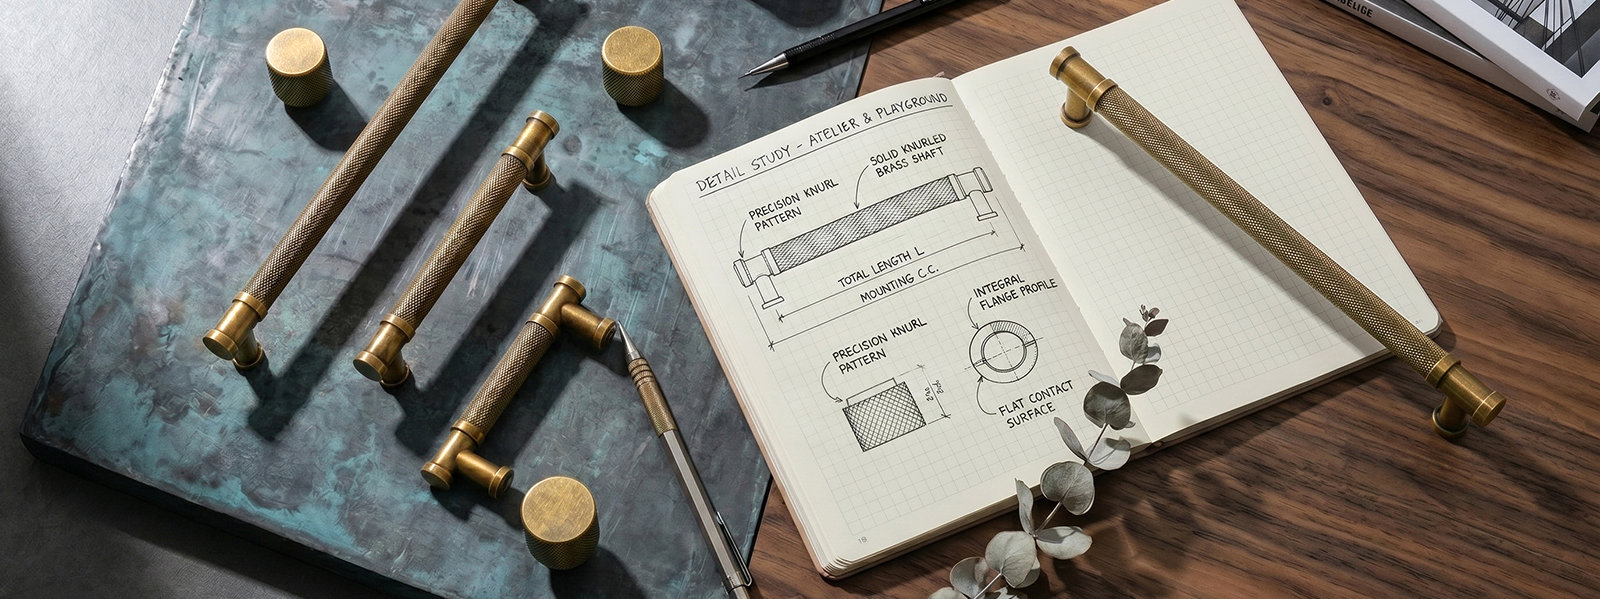 DETAIL STUDY - ATELIER & PLAYGROUND
PRECISION KNURL
PATTERN
SOLID KNURLED
BRASS SHAFT
TOTAL LENGTH L
MOUNTING C.C.
PRECISION KNURL
PATTERN
INTEGRAL
FLANGE PROFILE
FLAT CONTACT
SURFACE